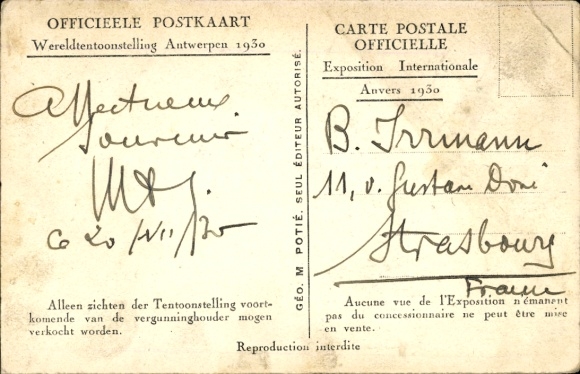 OFFICIEELE POSTKAART
Wereldtentoonstelling Antwerpen 1930
CARTE POSTALE
OFFICIELLE
Exposition Internationale
Anvers 1930
Affectueux
Souvenir
20/VII/30
GÉO. M POTIÉ. SEUL ÉDITEUR AUTORISÉ.
B. Irrmann
11, r. Gustave Doré
Strasbourg
France
Alleen zichten der Tentoonstelling voort-
komende van de vergunninghouder mogen
verkocht worden.
Aucune vue de l'Exposition n'émanent
pas du concessionnaire ne peut être mise
en vente.
Reproduction interdite